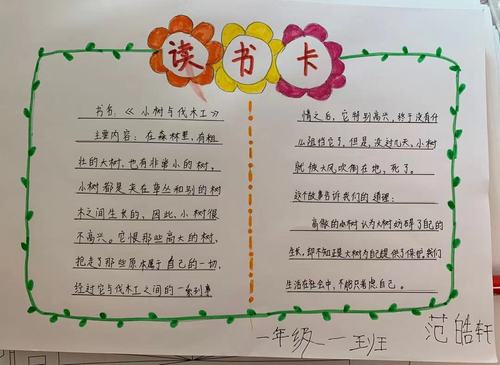 读书卡
书名：《小树与伐木工》
主要内容：在森林里，有粗
壮的大树，也有非常小的树，
小树都是夹在草丛和别的树
木之间生长的，因此，小树很
不高兴。它恨那些高大的树，
抢走了那些原本属于自己的一切，
经过它与伐木工之间的一系列事
情之后，它特别高兴，终于没有什
么阻挡它了，但是，没过几天，小树
就被大风吹倒在地，死了。
这个故事告诉我们的道理：
高傲的小树认为大树妨碍了自己的
生长，却不知正是大树为自己提供了保护。我们
生活在社会中，不能只考虑自己。
一年级一班 范皓轩